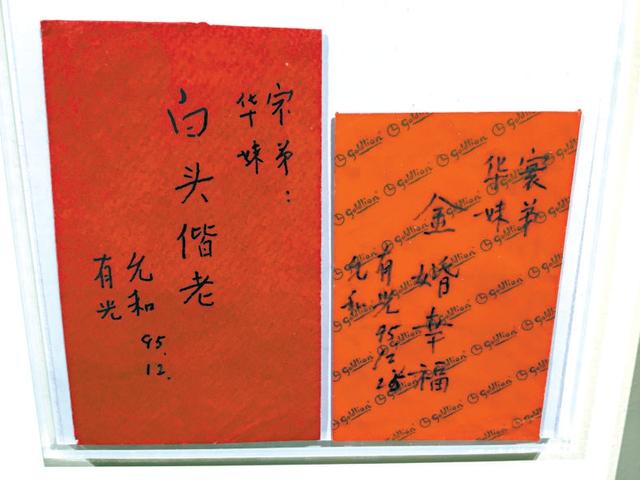 宋弟：
华妹
白头偕老
允和
有光
95.
12.
寰弟
华妹
金婚幸福
有光
允和
95
Goldlion